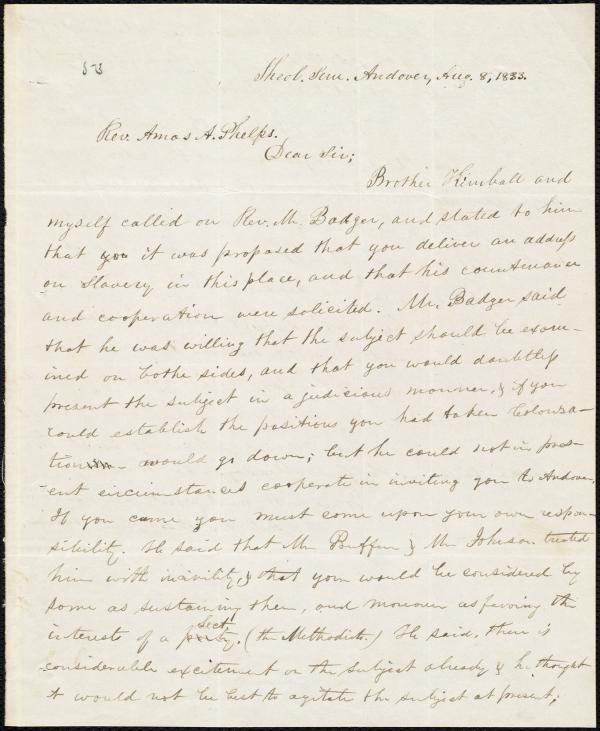 53
Theol. Sem. Andover, Aug. 8, 1833.
Rev. Amos A. Phelps.
Dear Sir;
Brother Kimball and
myself called on Rev. Mr. Badger, and stated to him
that you it was proposed that you deliver an address
on Slavery in this place, and that his countenance
and cooperation were solicited. Mr. Badger said
that he was willing that the subject should be exam-
ined on bothe sides, and that you would doubtless
present the subject in a judicious manner, & if you
could establish the positions you had taken Coloniza-
tion would go down; but he could not in pres-
ent circumstances cooperate in inviting you to Andover.
If you came you must come upon your own respon-
sibility. He said that Mr. Buffum & Mr. Johnson treated
him with incivility, & that you would be considered by
some as sustaining them, and moreover as favoring the
interests of a party. sect (the Methodists.) He said, there is
considerable excitement on the subject already & he thought
it would not be best to agitate the subject at present;